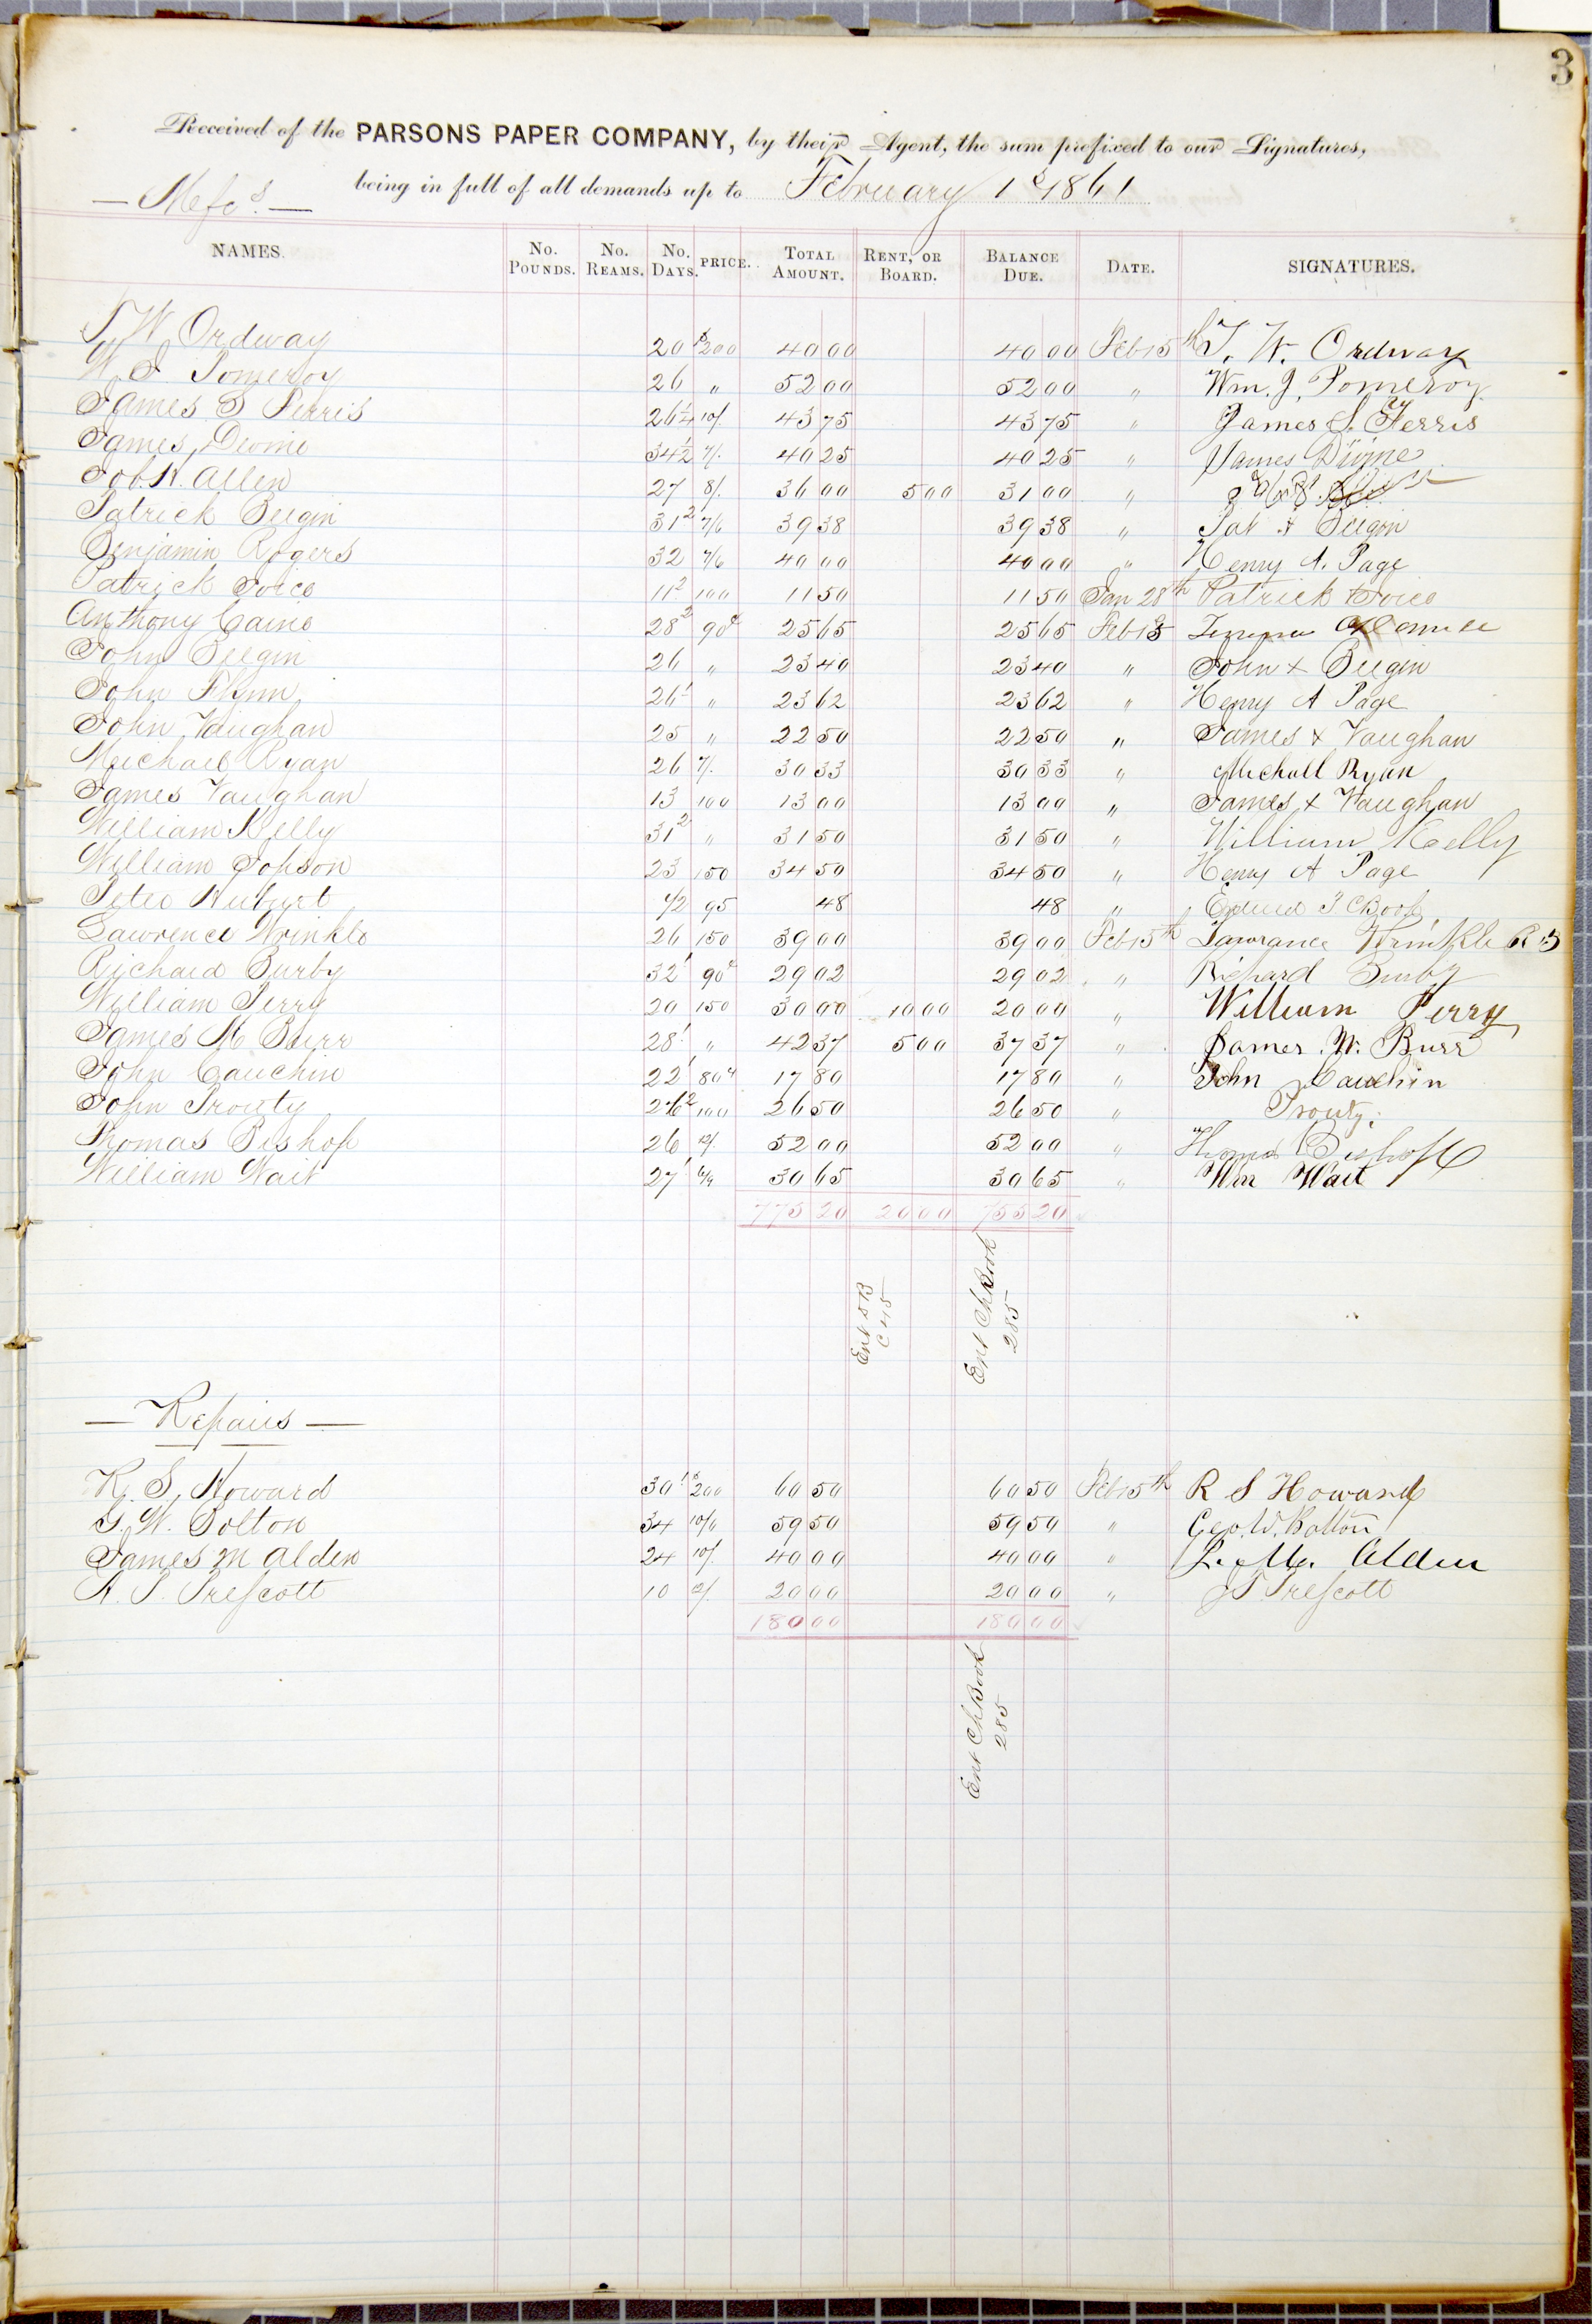 3
Received of the PARSONS PAPER COMPANY, by their Agent, the sum prefixed to our Signatures,
being in full of all demands up to February 1st 1861
NAMES. No. Pounds. No. Reams. No. Days. PRICE. Total Amount. Rent, or Board. Balance Due. Date. SIGNATURES.
T W Ordway 20 $200 40 00 40 00 Feb 15th T. W. Ordway
W J Pomeroy 26 " 52 00 52 00 " Wm. J. Pomeroy
James S Ferris 26 1/4 10/. 43 75 43 75 " James S. Ferris
James Devine 34 1/2 7/. 40 25 40 25 " James Divine
Job H. Allen 27 8/. 36 00 5 00 31 00 "
Patrick Beegin 31 2 7/6 39 38 39 38 " Pat x Beegin
Benjamin Rogers 32 7/6 40 00 40 00 " Henry A. Page
Patrick Joice 11 2 100 11 50 11 50 Jan 28th Patrick x Joice
Anthony Caine 28 2 90c 25 65 25 65 Feb 15
John Beegin 26 " 23 40 23 40 " John x Beegin
John Flynn 26 1 " 23 62 23 62 " Henry A Page
John Vaughan 25 " 22 50 22 50 " James x Vaughan
Michael Ryan 26 7/. 30 33 30 33 " Michall Ryan
James Vaughan 13 100 13 00 13 00 " James x Vaughan
William Kelly 31 2 " 31 50 31 50 " William Kelly
William Jopson 23 150 34 50 34 50 " Henry A Page
1/2 95 48 48 "
Lawrence Wrinkle 26 150 39 00 39 00 Feb 15th Lawrance Wrinkle
Richard Burby 32 1 90c 29 02 29 02 " Richard Burby
William Perry 20 150 30 00 10 00 20 00 " William Perry
James M Burr 28 1 " 42 37 5 00 37 37 " James M. Burr
John Cauchin 22 1 80c 17 80 17 80 " John Cauchin
John Prouty 26 2 100 26 50 26 50 " Prouty
Thomas Bishop 26 12/. 52 00 52 00 " Thomas Bishop
William Wait 27 1 6/9 30 65 30 65 " Wm Wait
775 20 20 00 755 20
Ent DB
C 45
Ent Ch Book
285
— Repairs —
R. S. Howard 30 1 $200 60 50 60 50 Feb 15th R S Howard
G. W. Bolton 34 10/6 59 50 59 50 " Geo. W. Bolton
James M Alden 24 10/. 40 00 40 00 " J. M. Alden
A. P. Prescott 10 12/. 20 00 20 00 " Prescott
180 00 180 00
Ent Ch Book
285